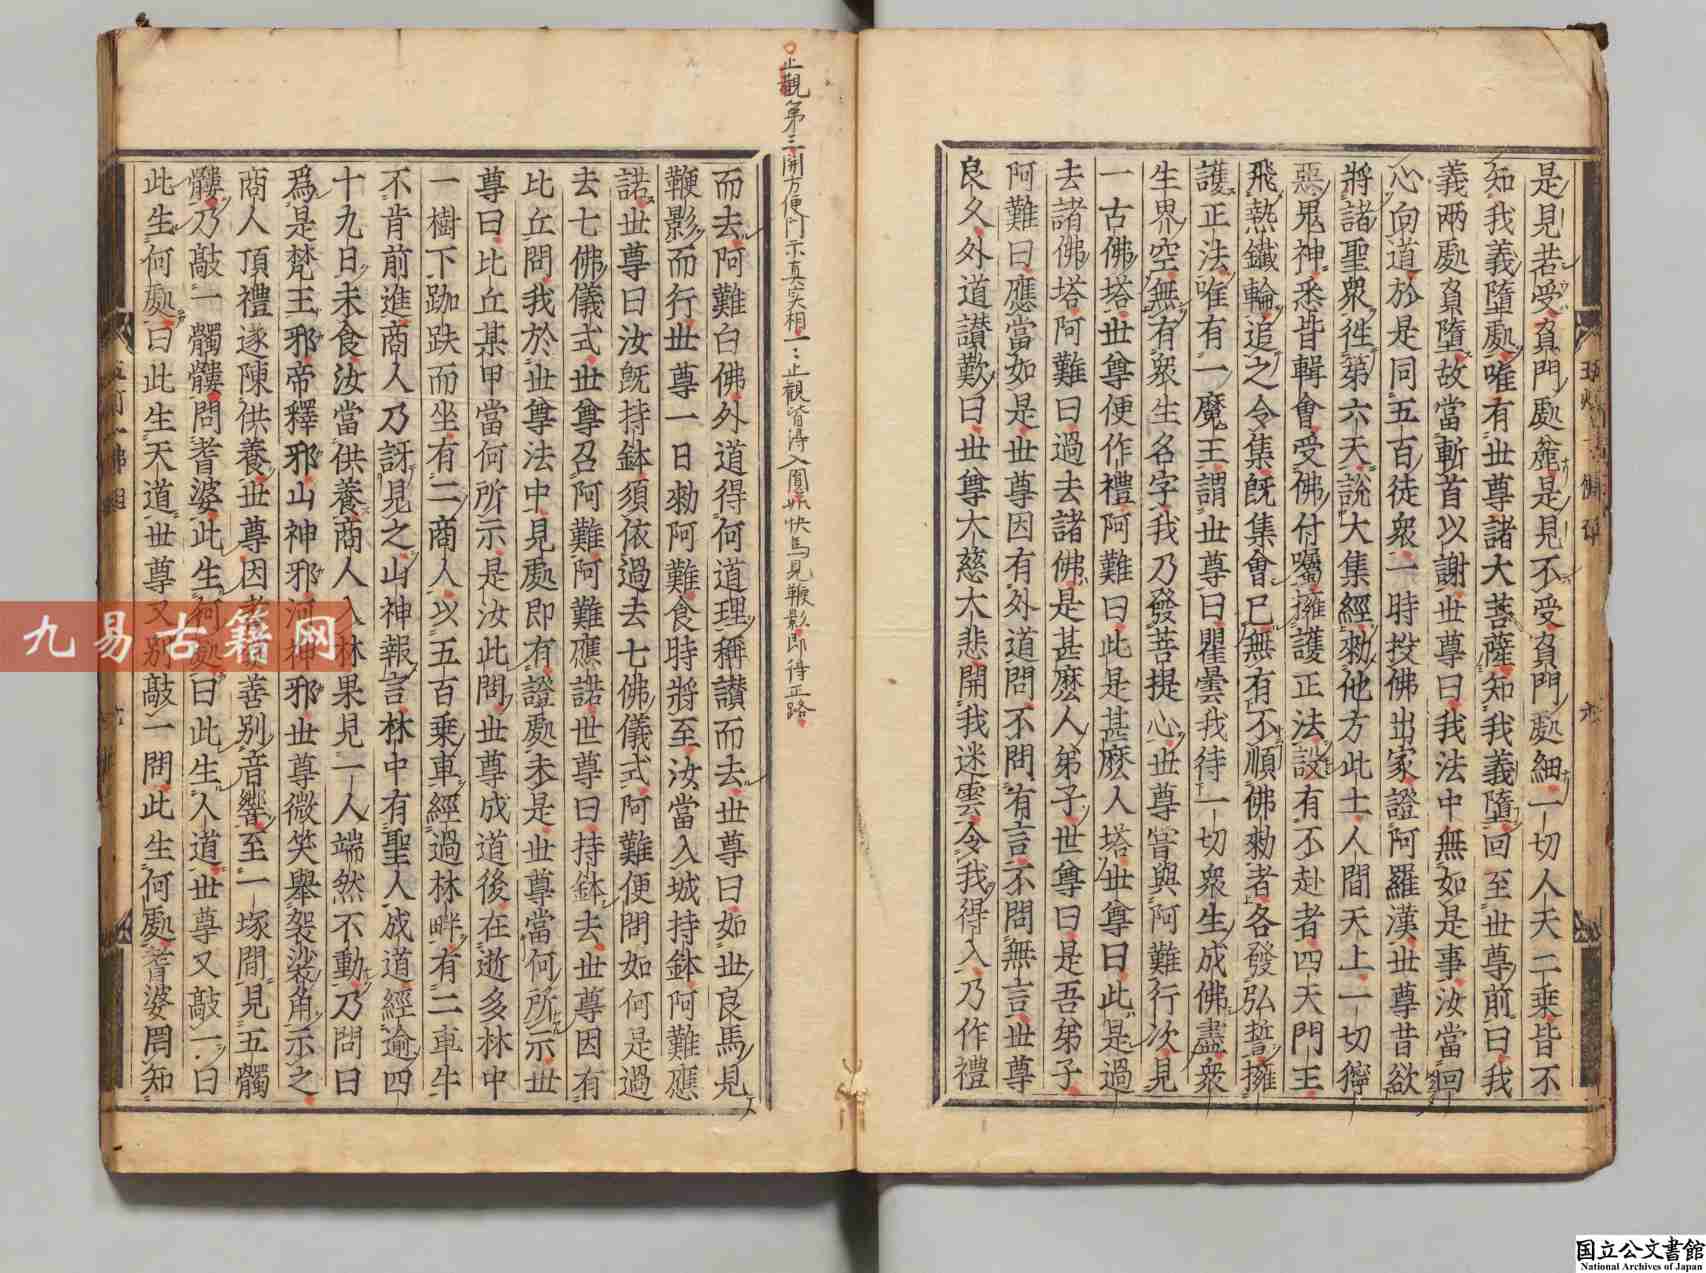 是見若受負門處麄是見不受負門處細一切人天二乘皆不
知我義墮處唯有世尊諸大菩薩知我義墮回至世尊前曰我
義兩處負墮故當斬首以謝世尊曰我法中無如是事汝當回
心向道於是同五百徒衆一時投佛出家證阿羅漢世尊昔欲
將諸聖衆徃第六天說大集經勑他方此土人間天上一切獰
惡鬼神悉皆輯會受佛付囑擁護正法設有不赴者四天門王
飛熱鐵輪追之令集既集會已無有不順佛勑者各發弘誓擁
護正法唯有一魔王謂世尊曰瞿曇我待一切衆生成佛盡衆
生界空無有衆生名字我乃發菩提心世尊甞與阿難行次見
一古佛塔世尊便作禮阿難曰此是甚麽人塔世尊曰此是過
去諸佛塔阿難曰過去諸佛是甚麽人弟子世尊曰是吾弟子
阿難曰應當如是世尊因有外道問不問有言不問無言世尊
良久外道讃歎曰世尊大慈大悲開我迷雲令我得入乃作禮
止觀第三開方便門示真实相
止觀皆得入
快馬見鞭影即得正路
而去阿難白佛外道得何道理稱讃而去世尊曰如世良馬見
鞭影而行世尊一日勑阿難食時將至汝當入城持鉢阿難應
諾世尊曰汝既持鉢須依過去七佛儀式阿難便問如何是過
去七佛儀式世尊召阿難阿難應諾世尊曰持鉢去世尊因有
比丘問我於世尊法中見處即有證處未是世尊當何所示世
尊曰比丘某甲當何所示是汝此問世尊成道後在逝多林中
一樹下跏趺而坐有二商人以五百乘車經過林畔有二車牛
不肯前進商人乃訝見之山神報言林中有聖人成道經逾四
十九日未食汝當供養商人入林果見一人端然不動乃問曰
爲是梵王邪帝釋邪山神邪河神邪世尊微笑舉袈裟角示之
商人頂禮遂陳供養世尊因耆婆善別音響至一塚間見五髑
髏乃敲一髑髏問耆婆此生何處曰此生人道世尊又敲一曰
此生何處曰此生天道世尊又別敲一問此生何處耆婆罔知
九易古籍网
国立公文書館
National Archives of Japan